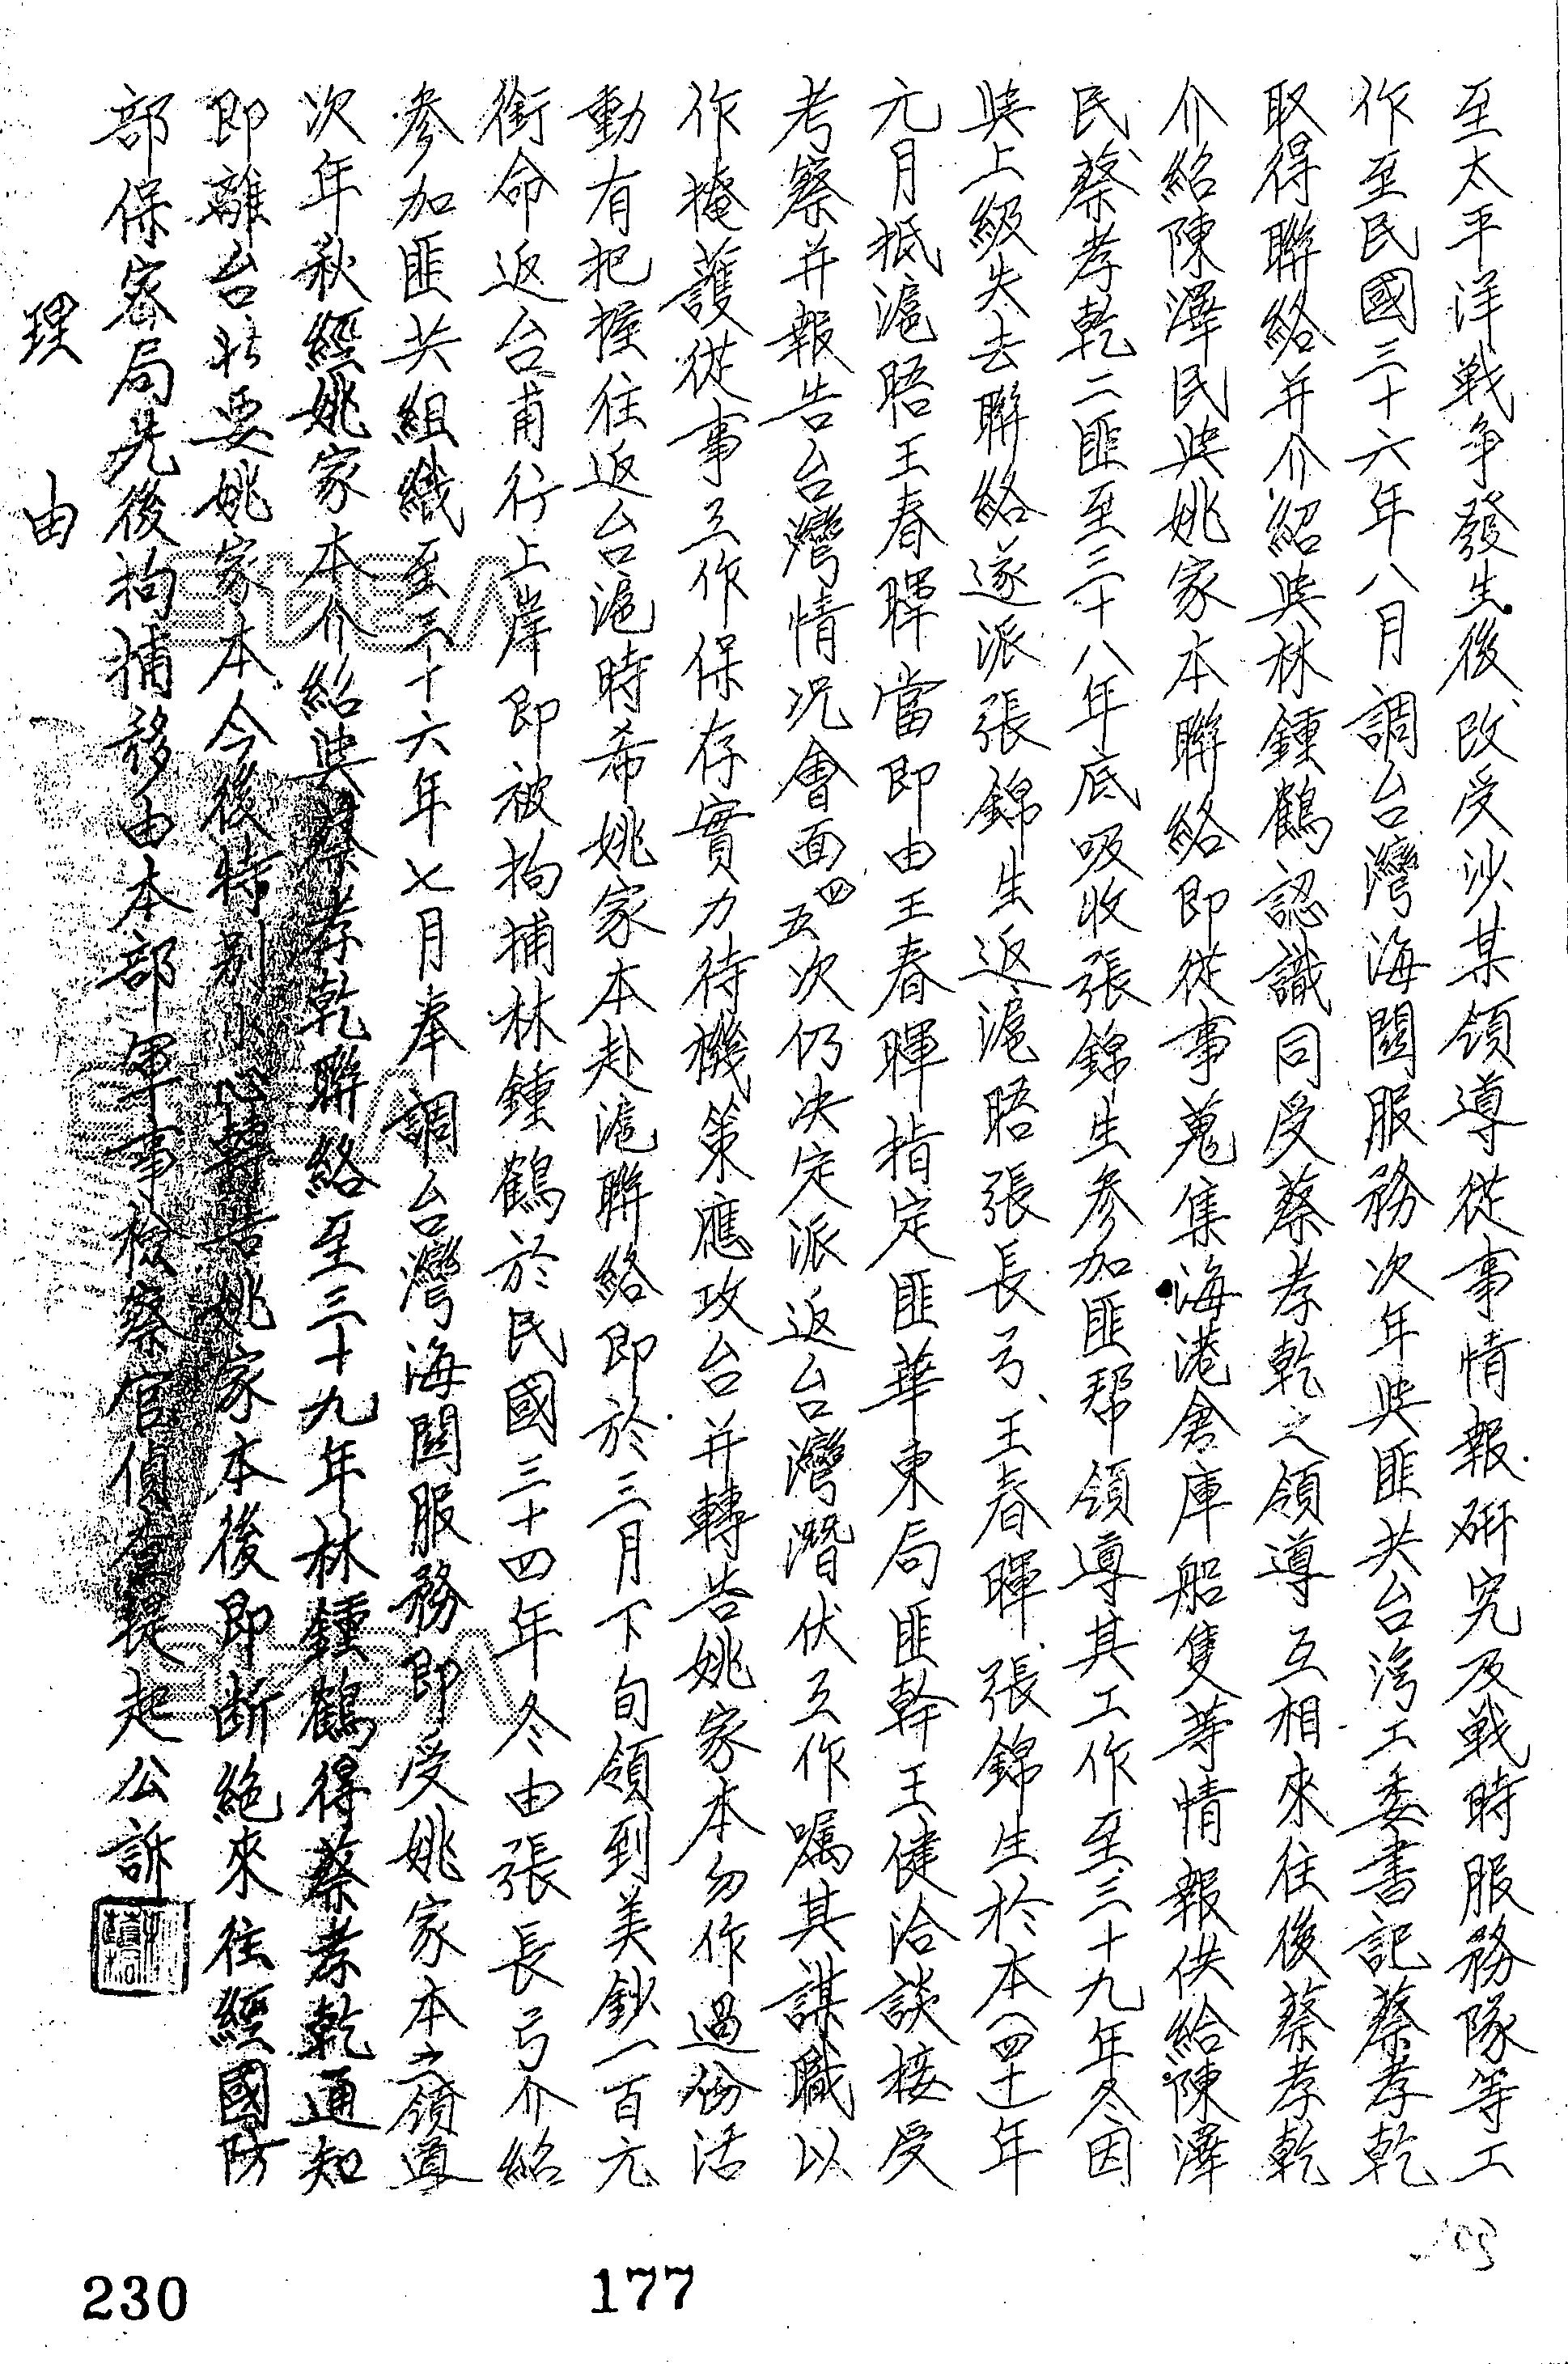 至太平洋戰争發生後改受沙某領導從事情報研究及戰時服務隊等工
作至民國三十六年八月調台灣海關服務次年與匪共台湾工委書記蔡孝乾
取得聯絡并介紹與林鍾鶴認識同受蔡孝乾之領導互相來往後蔡孝乾
介紹陳澤民與姚家本聯絡即從事蒐集海港倉庫船隻等情報供給陳澤
民蔡孝乾二匪至三十八年底吸收張錦生參加匪帮領導其工作至三十九年冬因
與上級失去聯絡遂派張錦生返滬晤張長弓、王春暉、張錦生於本(四十一)年
元月抵滬晤王春暉當即由王春暉指定匪華東局匪幹王健洽談接受
考察并報告台灣情況會面四五次仍决定派返台灣潛伏工作嘱其謀職以
作掩護從事工作保存實力待機策應攻台并轉告姚家本勿作過份活
動有把握往返台滬時希姚家本赴滬聯絡即於三月下旬領到美鈔一百元
銜命返台甫行上岸即被拘捕林鍾鶴於民國三十四年冬由張長弓介紹
參加匪共組織至三十六年七月奉調台灣海關服務即受姚家本之領導
次年秋經姚家本介紹與蔡孝乾聯絡至三十九年林鍾鶴得蔡孝乾通知
即離台北要姚家本今後特别小心轉告姚家本後即断絶來往經國防
部保密局先後拘捕移由本部軍事檢察官偵查提起公訴
理由
230
177